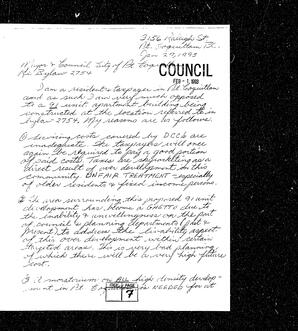 3156 Raleigh St
Pt. Coquitlam B.C.
Jan 27, 1993
Mayor & Council City of Pt Coquitlam
Re: Bylaw 2754
COUNCIL
FEB - 1, 1993
I am a resident & taxpayer in Pt Coquitlam
and as such I am very much opposed
to a 91 unit apartment building being
constructed at the location referred to in
bylaw 2754. My reasons are as follows:
① servicing costs covered by DCC's are
inadequate. The taxpayers will once
again be required to pay a good portion
of said costs. Taxes are skyrocketing as a
direct result of over development in this
community. UNFAIR TREATMENT especially
of older residents & fixed income persons.
② The area surrounding this proposed 91 unit
development has become a GHETTO due to
the inability & unwillingness on the part
of council & planning departments (past &
present) to address the livability aspect
of this over development within certain
targeted areas. this is very bad planning
of which there will be a very high future
cost.
③ A moratorium on ALL high density develop-
ment in Pt. is NEEDED for at
7